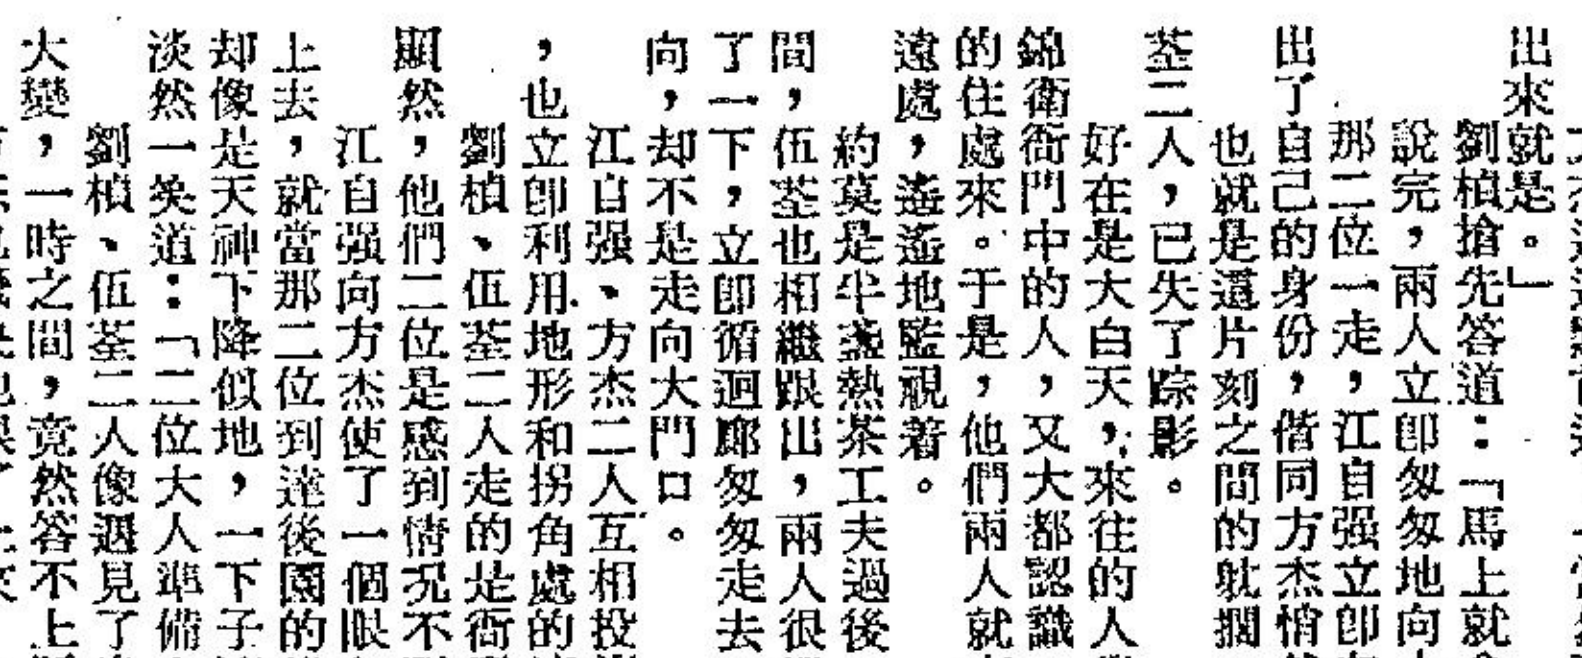 出來就是。」
劉楨搶先答道：「馬上就
說完，兩人立卽匆匆地向
那二位一走，江自强立卽
出了自己的身份，偕同方杰悄
也就是這片刻之間的躭擱
荃二人，已失了踪影。
好在是大白天，來往的人
錦衛衙門中的人，又大都認識
的住處來。于是，他們兩人就
遠處，遙遙地監視着。
約莫是半盞熱茶工夫過後
間，伍荃也相繼跟出，兩人很
了一下，立卽循迴廊匆匆走去
向，却不是走向大門口。
江自强、方杰二人互相投
，也立卽利用地形和拐角處的
劉楨、伍荃二人走的是衙
顯然，他們二位是感到情况不
江自强向方杰使了一個眼
上去，就當那二位到達後園的
却像是天神下降似地，一下子
淡然一笑道：「二位大人準備
劉楨、伍荃二人像遇見了
大變，一時之間，竟然答不上